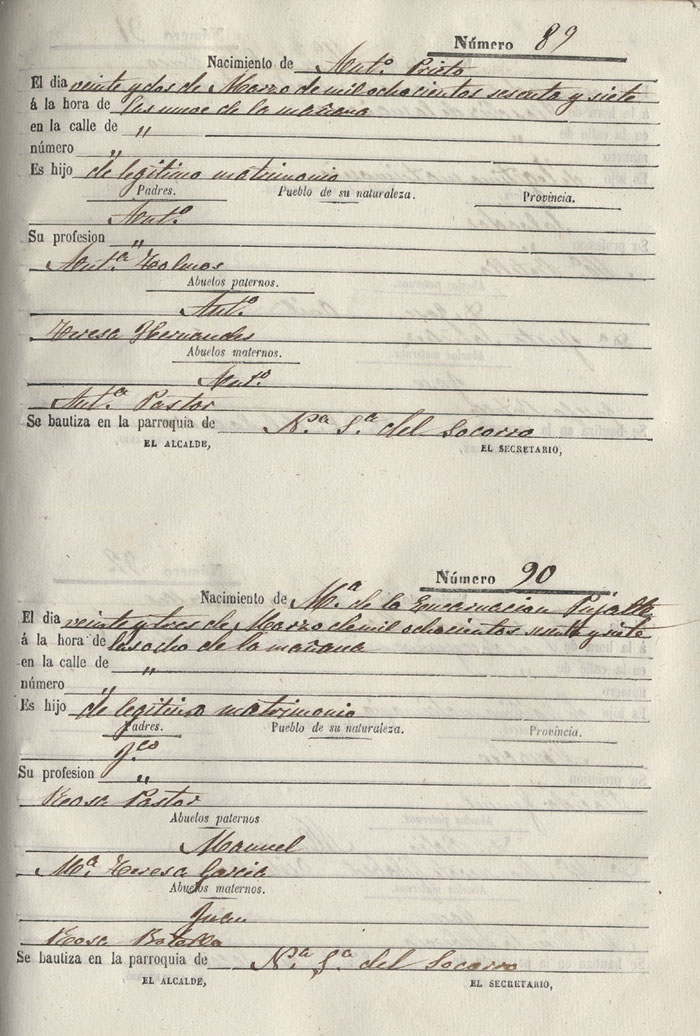 Número 89
Nacimiento de Antº Prieto
El dia veinte y dos de Marzo de mil ochocientos sesenta y siete
á la hora de las once de la mañana
en la calle de "
número "
Es hijo de legitimo matrimonio
Padres. Pueblo de su naturaleza. Provincia.
Antº
Su profesion "
Antª Tolmos
Abuelos paternos.
Antº
Teresa Hernandes
Abuelos maternos.
Antº
Antª Pastor
Se bautiza en la parroquia de Nª Sª del Socorro
EL ALCALDE, EL SECRETARIO,
Número 90
Nacimiento de Mª de la Encarnacion Pujalte
El dia veinte y tres de Marzo de mil ochocientos sesenta y siete
á la hora de las ocho de la mañana
en la calle de "
número "
Es hijo de legitimo matrimonio
Padres. Pueblo de su naturaleza. Provincia.
Fco
Su profesion "
Rosa Pastor
Abuelos paternos
Manuel
Mª Teresa Garcia
Abuelos maternos.
Juan
Rosa Botella
Se bautiza en la parroquia de Nª Sª del Socorro
EL ALCALDE, EL SECRETARIO,